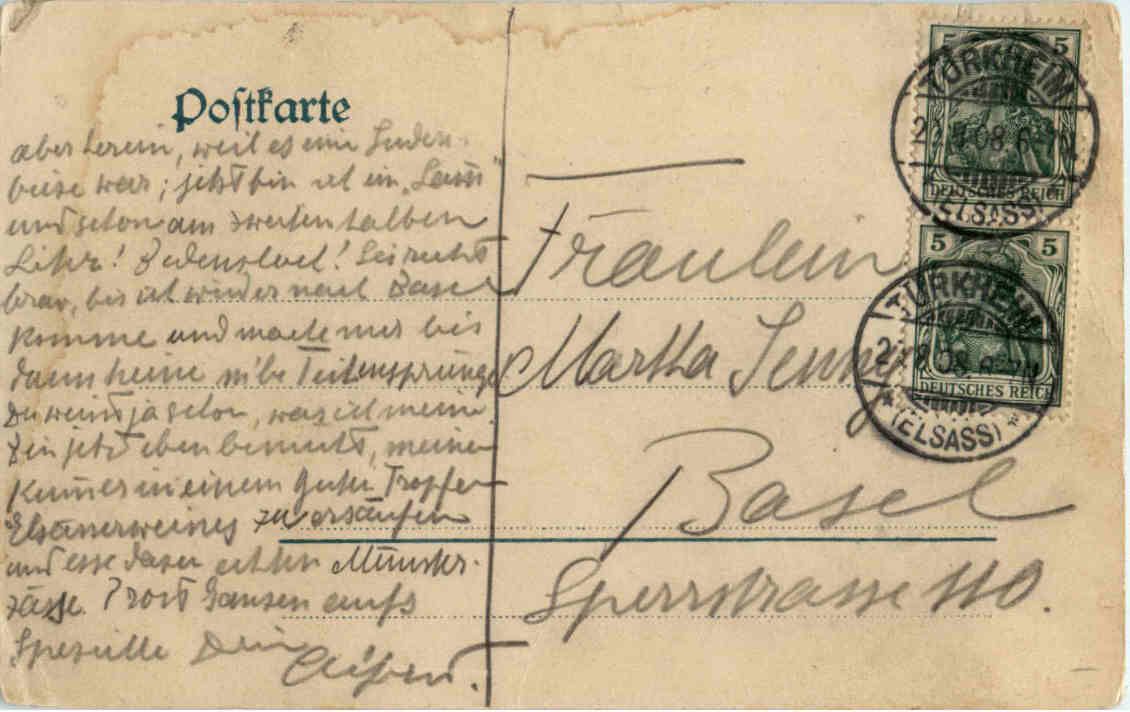 Postkarte
aber herein, weil es eine
war; jetzt bin ich im „Lamm"
und schon am zweiten halben
Liter! Sei recht
brav, bis ich wieder nach Basel
komme und mache mir bis
dann keine
Du weisst ja schon, was ich meine
Bin jetzt eben bemüht, meinen
Kummer in einem guten Tropfen
Elsässerweines zu ersäufen
und esse dazu echten Münster-
Prost aufs
Spezielle Dein
Fräulein
Martha Jenny
Basel
Sperrstrasse 110.
5 5
DEUTSCHES REICH
TÜRKHEIM
08. 6-7N
(ELSASS)
5 5
DEUTSCHES REICH
TÜRKHEIM
08. 6-7N
* (ELSASS) *